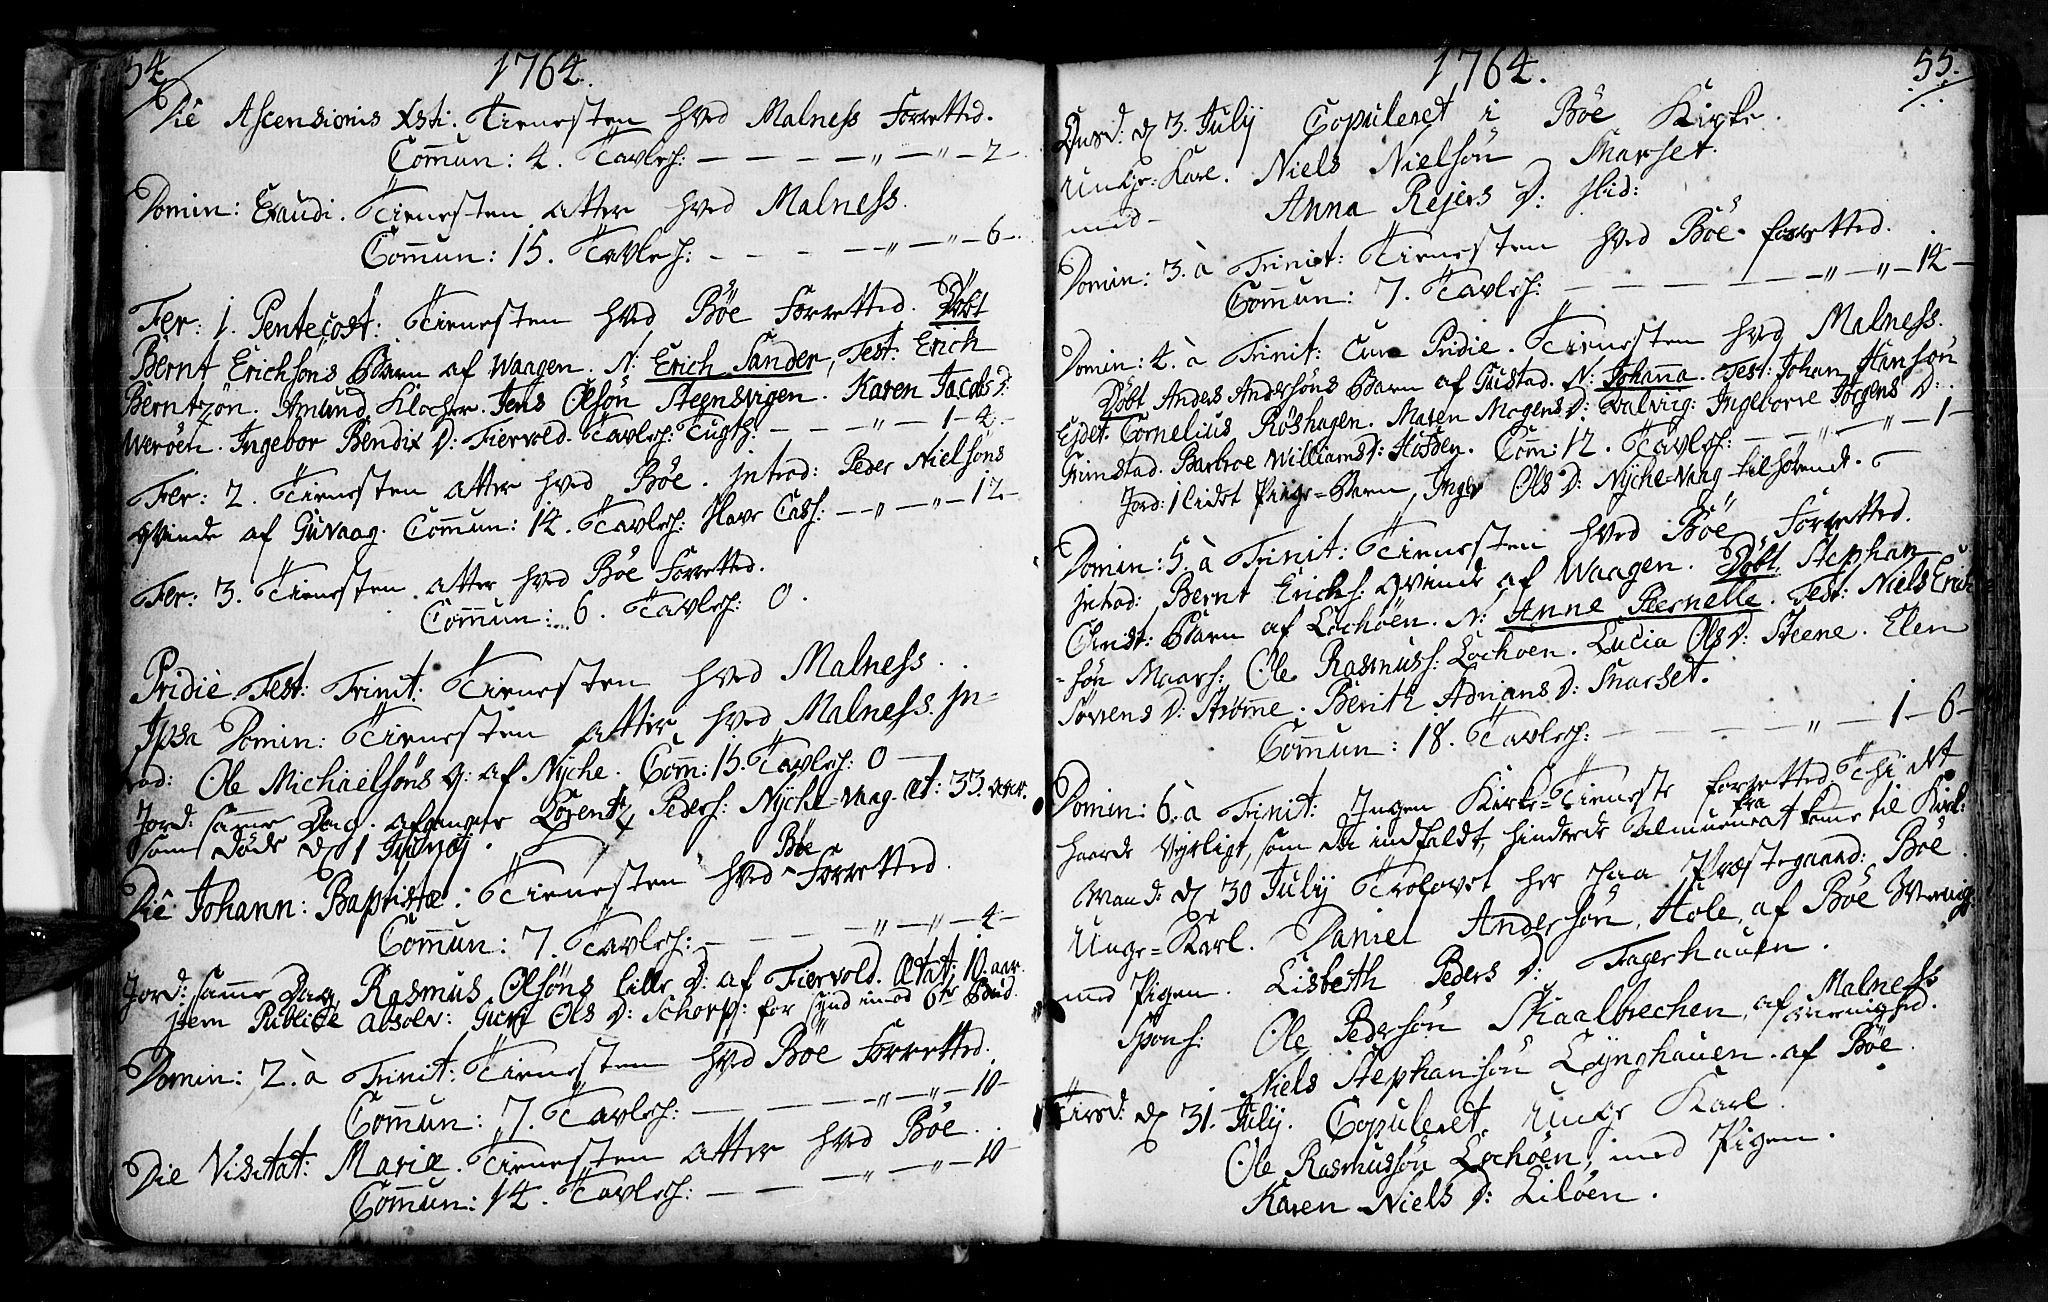 54.
1764.
Die Ascensionis Xsti. Tienesten hved Malness Forretted.
Com̄un: 4. Tavlesh: — — — — " — " — 2 —
Domin: Exaudi. Tienesten atter hved Malness.
Com̄un: 15. Tavlesh: — — — — " — " — 6 —
Fer: 1. Pentecost: Tienesten hved Böe Forretted. Döbt
Bernt Erichsöns Barn af Waagen. N: Erich Sander, Test: Erich
Berntzön. Amund Klocher. Jens Olsön Stensvigen. Karen Jacobs D:
Weröen. Ingebor Bendix D: Fiervold. Tavlesh: Tugth: — — — " — 1 — 4 —
Fer: 2. Tienesten atter hved Böe. Introd: Peder Nielsöns
qvinde af Guvaag. Com̄un: 14. Tavlesh: Cass: — " — " — 12 —
Fer: 3. Tienesten atter hved Böe Forretted.
Com̄un: 6. Tavlesh: 0.
Pridie Fest: Trinit: Tienesten hved Malness.
Ipsa Domin: Tienesten atter hved Malness. In-
trod: Ole Michaelsöns q: af Nyche. Com̄: 15. Tavlesh: 0 —
Jord: sam̄e Dag. afgangne Lorentz Peders: Nyche-Vaag. æt: 33. aar.
som döde d 1 Juny.
Die Johann: Baptistæ: Tienesten hved Böe Forretted.
Com̄un: 7. Tavlesh: — — — — " — " — 4 —
Jord: sam̄e Dag Rasmus Olsöns lille D: af Fiervold. Ætat: 10. aar.
Item Publice absolv: Guri Ols D: for Synd imod 6te Bud.
Domin: 2. à Trinit: Tienesten hved Böe Forretted.
Com̄un: 7. Tavlesh: — — — " — " — 10 —
Die Visitat: Mariæ. Tienesten atter hved Böe.
Com̄un: 14. Tavlesh: — — — " — " — 10 —
1764.
55.
d 3. July Copuleret i Böe Kirke.
Unge-Karl. Niels Nielsön Snarset.
med - Anna Rejers D: ibid:
Domin: 3. à Trinit: Tienesten hved Böe. forretted.
Com̄un: 7. Tavlesh: — — — — — " — " — 14 —
Domin: 4. à Trinit: cum Pridie. Tienesten hved Malness.
Döbt Anders Andersöns Barn af Gustad. N: Johanna. Test: Johan Hansön
Ejdet. Cornelius Röshagen. Maren Mogens D: Ingeborre Jörgens D:
Grimstad. Barbroe Williams D: Hofden. Com̄: 12. Tavlesh: — — " — " — 1 —
Jord: 1 lidet Pige-Barn, Inger Ols D: Nyche-Vaag tilhörende.
Domin: 5. à Trinit: Tienesten hved Böe Forretted.
Introd: Bernt Erichs: qvinde af Waagen. Döbt Stephan
Barn af Lochöen. N: Anne Pernelle. Test: Niels Erich-
-sön Maars: Ole Rasmuss: Lochoen. Lucia Ols D: Steene. Elen
Sörens D: Ström̄e. Berith Adrians D: Snarset.
Com̄un: 18. Tavlesh: — — — — " — 1 — 6 —
Domin: 6. à Trinit: Ingen Kirke-Tieneste forretted. Thi det
haarde Vejrligt, som da indfaldt, hinderede Almuen fra at kom̄e til Kirk:
Mand: d 30 July Trolovet her paa Præstegaard: Böe.
Unge-Karl. Daniel Andersön Hole, af Böe Menig:
med Pigen. Lisbeth Peders D: Fagerhauen.
Spons: Ole Pedersön Skaalbrechen, af Malness
Menighed.
Niels Stephansön Lynghauen. af Böe.
Tirsd: d 31. July. Copuleret Unge Karl.
Ole Rasmussön Lochöen, med Pigen.
Karen Niels D: Lilöen.